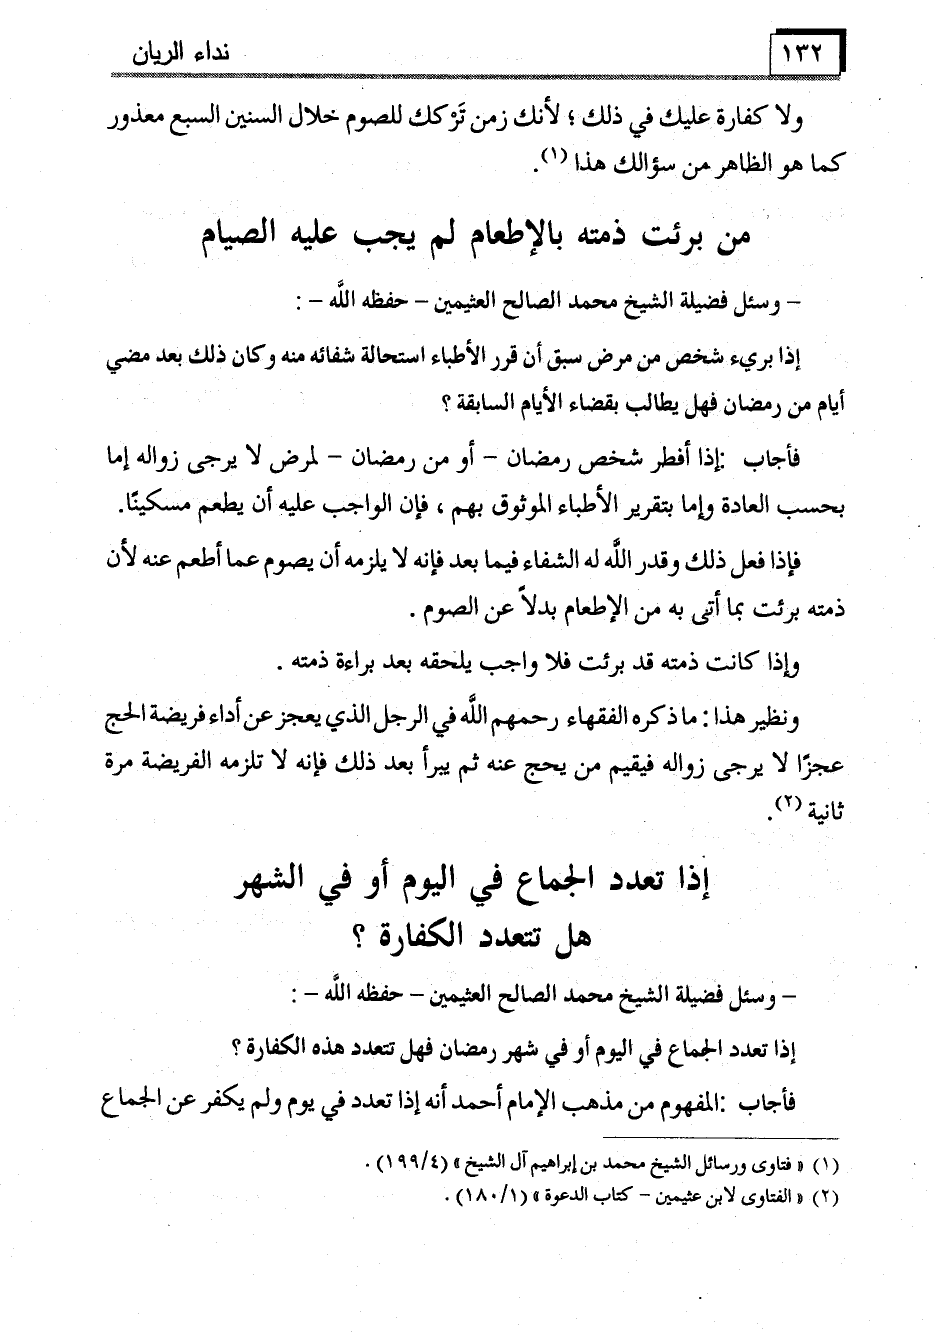 ١٣٢ نداء الريان
ولا كفارة عليك في ذلك ؛ لأنك زمن تَرْكك للصوم خلال السنين السبع معذور
كما هو الظاهر من سؤالك هذا (١).
من برئت ذمته بالإطعام لم يجب عليه الصيام
– وسئل فضيلة الشيخ محمد الصالح العثيمين – حفظه اللَّه – :
إذا بريء شخص من مرض سبق أن قرر الأطباء استحالة شفائه منه وكان ذلك بعد مضي
أيام من رمضان فهل يطالب بقضاء الأيام السابقة ؟
فأجاب :إذا أفطر شخص رمضان – أو من رمضان – لمرض لا يرجى زواله إما
بحسب العادة وإما بتقرير الأطباء الموثوق بهم ، فإن الواجب عليه أن يطعم مسكينًا.
فإذا فعل ذلك وقدر اللَّه له الشفاء فيما بعد فإنه لا يلزمه أن يصوم عما أطعم عنه لأن
ذمته برئت بما أتى به من الإطعام بدلاً عن الصوم .
وإذا كانت ذمته قد برئت فلا واجب يلحقه بعد براءة ذمته .
ونظير هذا : ما ذكره الفقهاء رحمهم اللَّه في الرجل الذي يعجز عن أداء فريضة الحج
عجزًا لا يرجى زواله فيقيم من يحج عنه ثم يبرأ بعد ذلك فإنه لا تلزمه الفريضة مرة
ثانية (٢).
إذا تعدد الجماع في اليوم أو في الشهر
هل تتعدد الكفارة ؟
– وسئل فضيلة الشيخ محمد الصالح العثيمين – حفظه اللَّه – :
إذا تعدد الجماع في اليوم أو في شهر رمضان فهل تتعدد هذه الكفارة ؟
فأجاب :المفهوم من مذهب الإمام أحمد أنه إذا تعدد في يوم ولم يكفر عن الجماع
(١) « فتاوى ورسائل الشيخ محمد بن إبراهيم آل الشيخ » (١٩٩/٤) .
(٢) « الفتاوى لابن عثيمين – كتاب الدعوة » (١٨٠/١) .